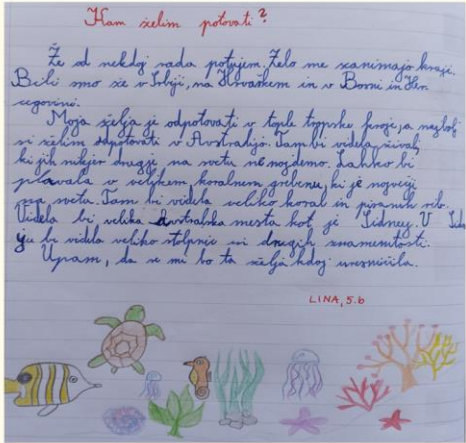 Kam želim potovati?
Že od nekdaj rada potujem. Zelo me zanimajo kraji.
Bili smo že v Srbiji, na Hrvaškem in v Bosni in Her
cegovini.
Moja želja je odpotovati v tople tropske kraje, a najbolj
si želim odpotovati v Avstralijo. Tam bi videla živali
ki jih nikjer drugje na svetu ne najdemo. Lahko bi
plavala v velikem koralnem grebenu, ki je največji
na svetu. Tam bi videla veliko koral in pisanih rib.
Videla bi velika avstralska mesta kot je Sidney. V Sid
yu bi videla veliko stolpnic in drugih znamenitosti.
Upam, da se mi bo ta želja kdaj uresničila.
LINA, 5.b